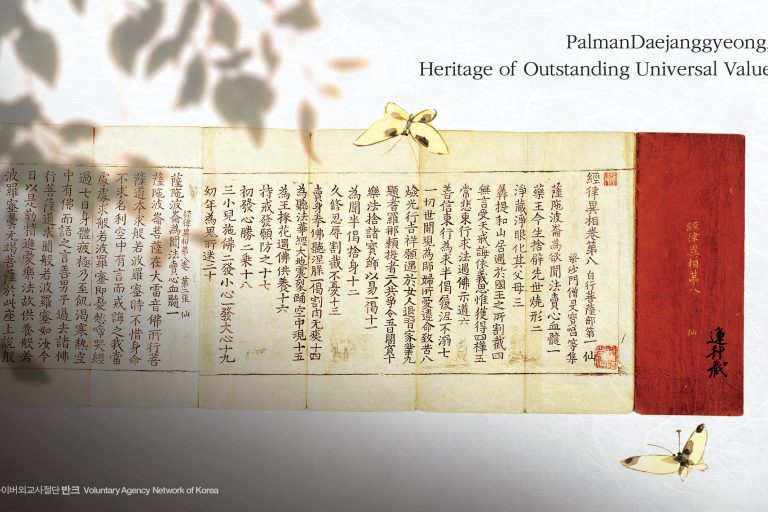 PalmanDaejanggyeong,
Heritage of Outstanding Universal Value
經律異相第八 仙
經律異相卷第八 自行菩薩部第一 仙
梁沙門僧旻寶唱等集
薩陁波崙為欲聞法賣心血髓一
藥王今生捨臂先世燒形二
淨藏淨眼化其父母三
羼提和山居遇於國王之所割截四
無言受天戒誨係義思惟獲得四禪五
常悲東行求法遇佛示道六
善信東行為求半偈沮不溺七
一切世間現為師婦所愛違命致苦八
焰光行吉祥願遇於女人退習家業九
題耆羅那賴提耆二人共爭令五日闇冥十
樂法捨諸寶飾以易一偈十一
為聞半偈捨身十二
久修忍辱割截不憂十三
賣身奉佛聽涅槃一偈割肉無痍十四
為聽法華經大地震裂踊空中現十五
為王採花遇佛供養十六
持戒發願防之十七
初發心勝二乘十八
三小兒施佛二發小心一發大心十九
幼年為鬼所迷二十
經律異相第八卷 第二張 仙
薩陁波崙為聞法賣心血髓一
薩陁波崙菩薩在大雷音佛所行菩
薩道本求般若波羅蜜時不惜身命
不求名利空中有言而戒誨之我當
處處求般若波羅蜜即憂愁啼哭經
過七日身體疲極乃至飢渴寒熱空
中有佛而語之言善男子過去諸佛
行菩薩道求聞般若波羅蜜如汝今
日以是勤精進愛樂法故供養般若
波羅蜜菩薩於此座上說般
이버외교사절단 반크 Voluntary Agency Network of Korea